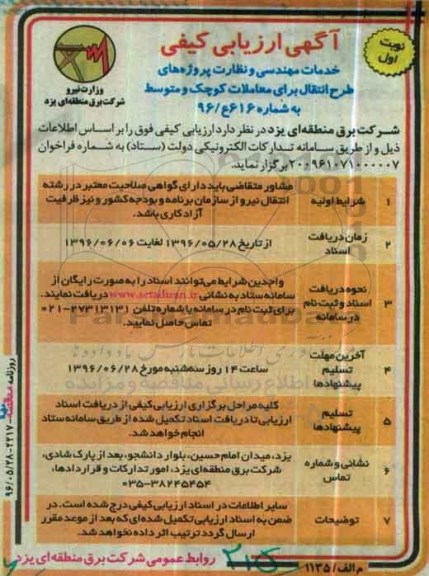 نوبت اول
آگهی ارزیابی کیفی
خدمات مهندسی و نظارت پروژه‌های
طرح انتقال برای معاملات کوچک و متوسط
به شماره ۶۱۶ع/۹۶
وزارت نیرو
شرکت برق منطقه‌ای یزد
شرکت برق منطقه‌ای یزد در نظر دارد ارزیابی کیفی فوق را بر اساس اطلاعات
ذیل و از طریق سامانه تدارکات الکترونیکی دولت (ستاد) به شماره فراخوان
۲۰۰۹۶۱۰۷۱۰۰۰۰۰۷ برگزار نماید.
۱ شرایط اولیه
مشاور متقاضی باید دارای گواهی صلاحیت معتبر در رشته
انتقال نیرو از سازمان برنامه و بودجه کشور و نیز ظرفیت
آزاد کاری باشد.
۲ زمان دریافت اسناد
از تاریخ ۱۳۹۶/۰۵/۲۸ لغایت ۱۳۹۶/۰۶/۰۶
۳ نحوه دریافت اسناد و ثبت نام در سامانه
واجدین شرایط می‌توانند اسناد را به صورت رایگان از
سامانه ستاد به نشانی www.setadiran.ir دریافت نمایند.
برای ثبت نام در سامانه با شماره تلفن ۲۷۳۱۳۱۳۱-۰۲۱
تماس حاصل نمایید.
۴ آخرین مهلت تسلیم پیشنهادها
ساعت ۱۴ روز سه‌شنبه مورخ ۱۳۹۶/۰۶/۲۸
۵ تسلیم پیشنهادها
کلیه مراحل برگزاری ارزیابی کیفی از دریافت اسناد
ارزیابی تا دریافت اسناد تکمیل شده از طریق سامانه ستاد
انجام خواهد شد.
۶ نشانی و شماره تماس
یزد، میدان امام حسین، بلوار دانشجو، بعد از پارک شادی،
شرکت برق منطقه‌ای یزد، امور تدارکات و قراردادها،
۰۳۵-۳۸۲۴۵۴۵۴
۷ توضیحات
سایر اطلاعات در اسناد ارزیابی کیفی درج شده است. در
ضمن به اسناد ارزیابی تکمیل شده‌ای که بعد از موعد مقرر
ارسال گردد ترتیب اثر داده نخواهد شد.
روابط عمومی شرکت برق منطقه‌ای یزد
م الف/ ۱۱۳۵
۹۶/۰۵/۲۸-۲۲۱۷
روزنامه